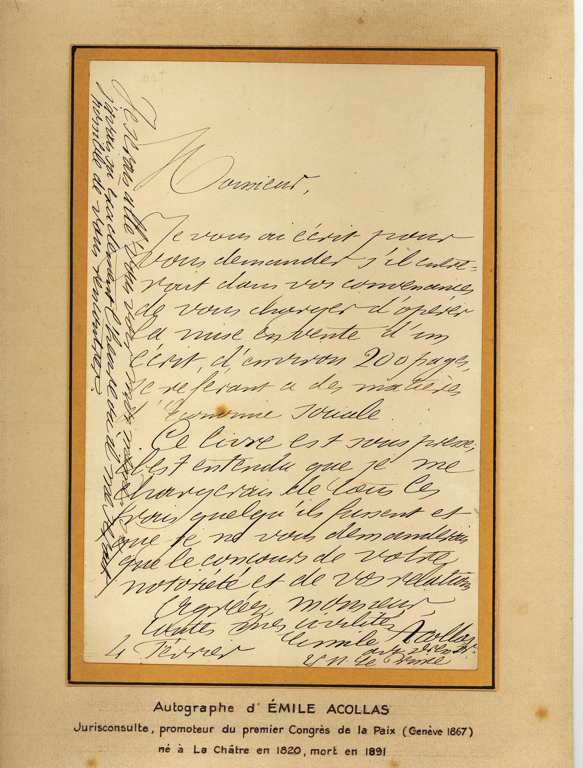 Monsieur,
Je vous ai écrit pour
vous demander s'il entre-
rait dans vos convenances
de vous charger d'opérer
la mise en vente d'un
écrit, d'environ 200 pages,
se référant à des matières
d'Économie sociale.
Ce livre est sous presse;
il est entendu que je me
chargerais de tous les
frais quelqu'ils fussent et
que je ne vous demanderais
que le concours de votre
notoriété et de vos relations
Agréez, monsieur,
toutes mes civilités
Émile Acollas
4 Février
Je suis allé
j'avais
possible de vous rencontrer?
Autographe d' ÉMILE ACOLLAS
Jurisconsulte, promoteur du premier Congrès de la Paix (Genève 1867)
né à La Châtre en 1820, mort en 1891